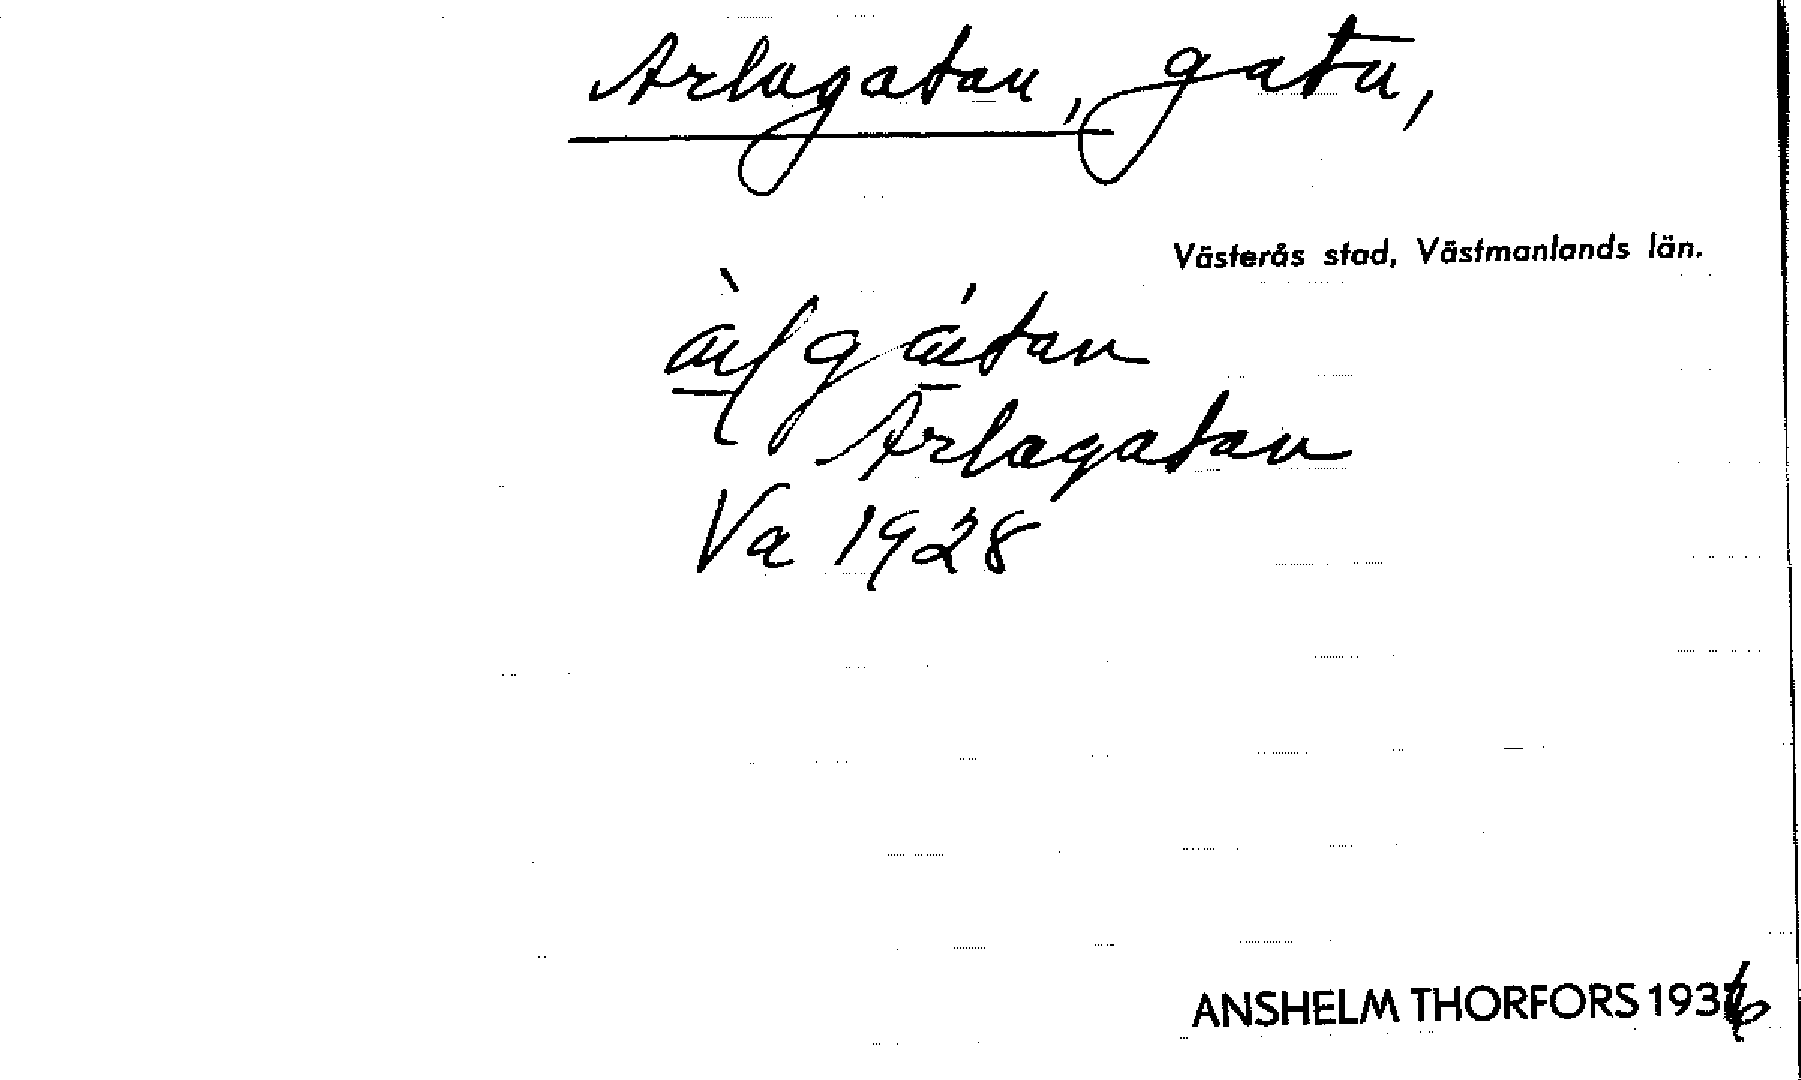 Arlagatan, gata,
Västerås stad, Västmanlands län.
Arlagatan
Va 1928
ANSHELM THORFORS 1936